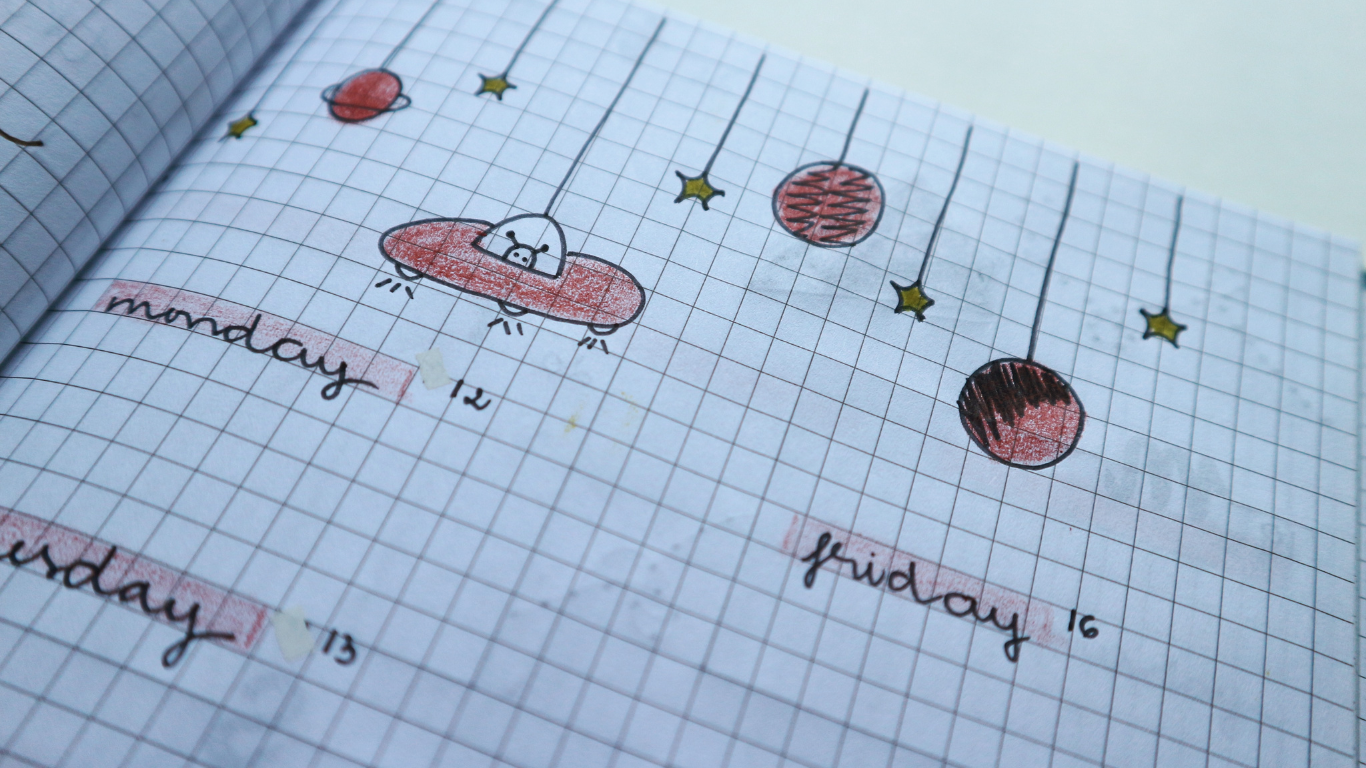 monday 12
esday 13
friday 16